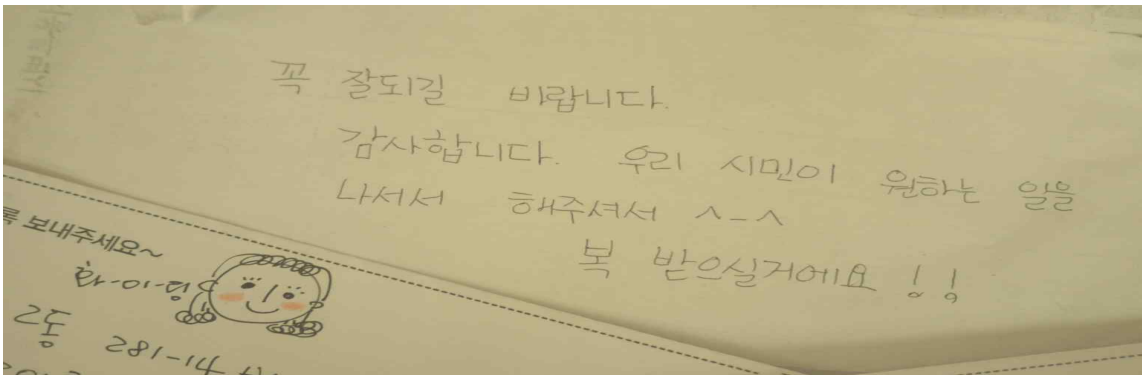 꼭 잘되길 바랍니다.
감사합니다. 우리 시민이 원하는 일을
나서서 해주셔서 ^-^
복 받으실거에요 !!
록 보내주세요~
2동 281-14